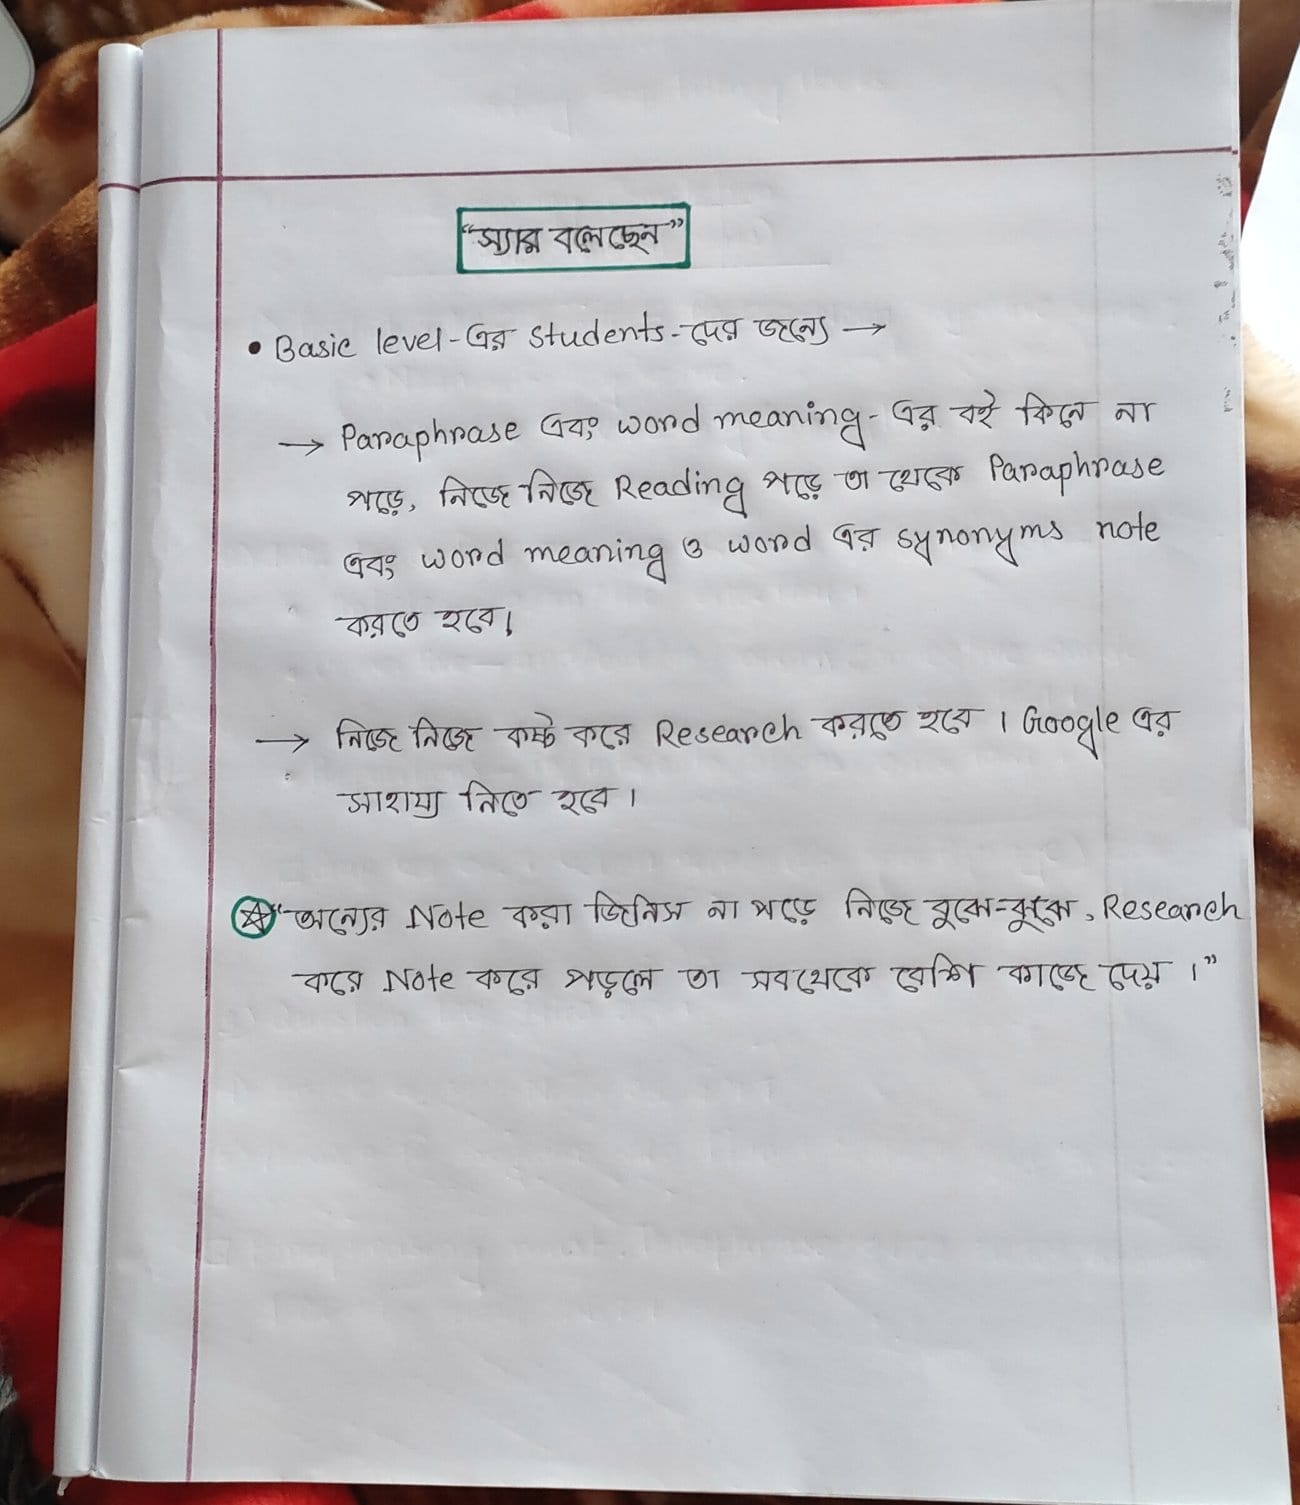 “স্যার বলেছেন”
• Basic level-এর students-দের জন্যে →
→ Paraphrase এবং word meaning-এর বই কিনে না
পড়ে, নিজে নিজে Reading পড়ে তা থেকে Paraphrase
এবং word meaning ও word এর synonyms note
করতে হবে।
→ নিজে নিজে কষ্ট করে Research করতে হবে । Google এর
সাহায্য নিতে হবে ।
“অন্যের Note করা জিনিস না পড়ে নিজে বুঝে-বুঝে, Research
করে Note করে পড়লে তা সবথেকে বেশি কাজে দেয় ।”